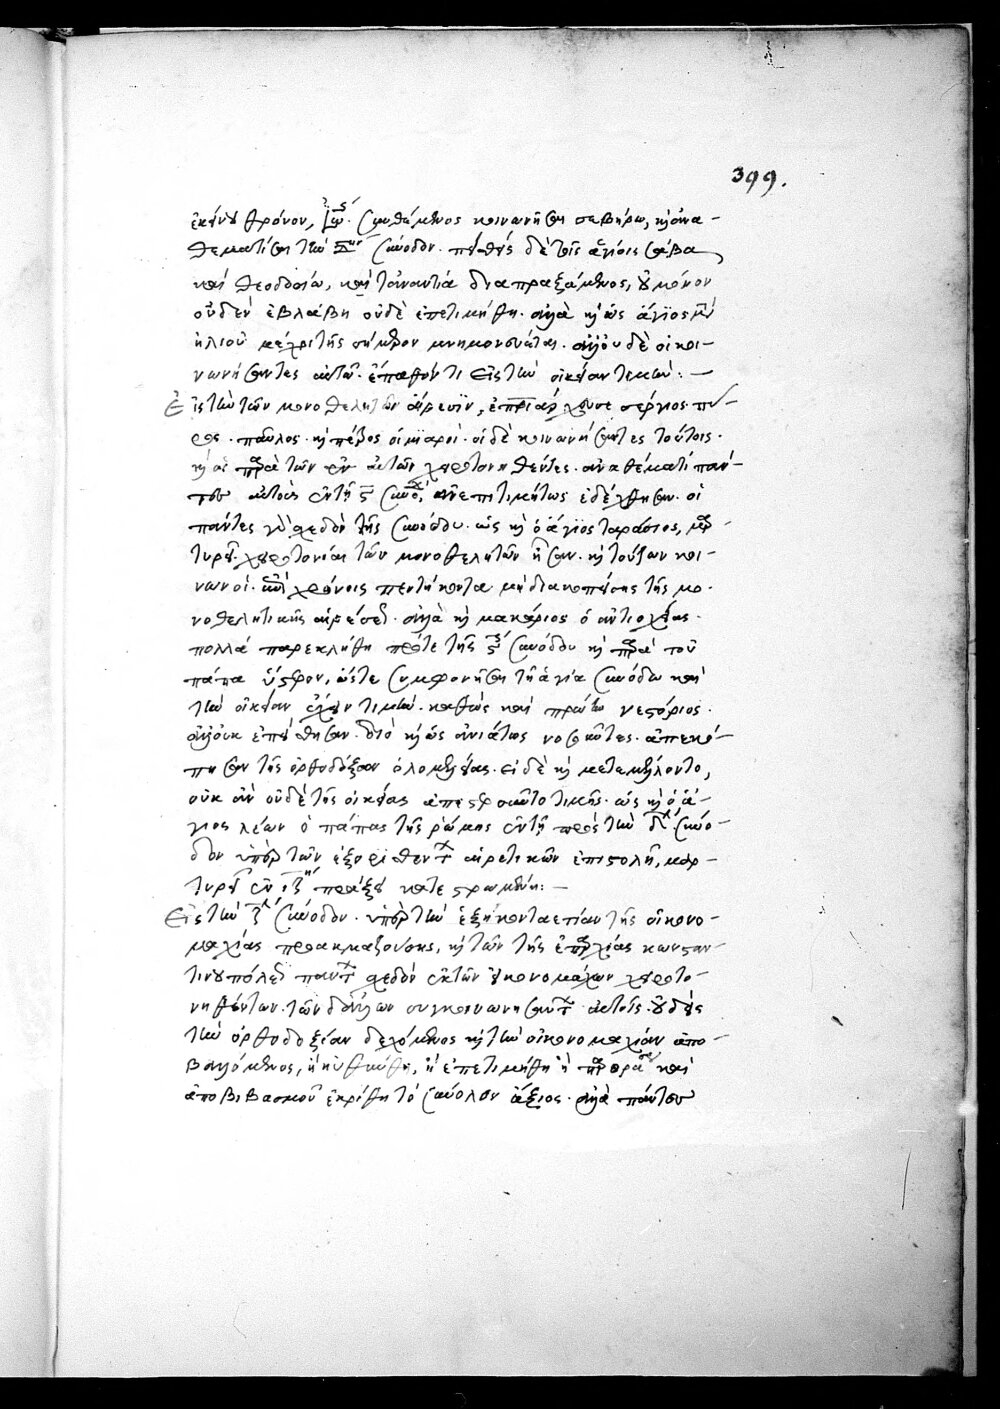 399.
ἐκείνου θρόνον, Ἰω. συνθέμενος κοινωνῆσαι σεβήρω, καὶ ἀνα-
θεματίσαι τὴν σύνοδον. πεισθεὶς δὲ τοῖς ἁγίοις σάβα
καὶ θεοδοσίω, καὶ τἀναντία διαπραξάμενος, οὐ μόνον
οὐδὲν ἐβλάβη οὐδὲ ἐπετιμήθη. ἀλλὰ καὶ ὡς ἅγιος μετὰ
ἡλιοῦ μέχρι τῆς σήμερον μνημονεύεται. ἀλλ' οὐδὲ οἱ κοι-
νωνήσαντες αὐτῶ. ἔπαθόν τι εἰς τὴν οἰκείαν τιμήν: —
Εἰς τὴν τῶν μονοθελητῶν αἵρεσιν, ἐπατριάρχουσε σέργιος. πύ-
ρος. παῦλος. καὶ πέτρος οἱ μιαροί. οἱ δὲ κοινωνήσαντες τούτοις.
καὶ οἱ παρὰ τῶν αὐτῶν χειροτονηθέντες. ἀναθεματίσαν-
τες αὐτοὺς ἐν τῇ ϛ συνόδω, ἀνεπιτιμήτως ἐδέχθησαν. οἱ
πάντες γὰρ σχεδὸν τῆς συνόδου. ὡς καὶ ὁ ἅγιος ταράσιος, μαρ-
τυρεῖ. χειροτονίαι τῶν μονοθελητῶν ἦσαν. καὶ τούτων κοι-
νωνοί. ἐπὶ χρόνοις πεντήκοντα μὴ διακοπείσης τῆς μο-
νοθελητικῆς αἱρέσεως. ἀλλὰ καὶ μακάριος ὁ ἀντιοχείας.
πολλὰ παρεκλήθη πρός τε τῆς ϛ συνόδου καὶ παρὰ τοῦ
πάπα ὕστερον, ὥστε συμφωνῆσαι τῆ ἁγία συνόδω καὶ
τὴν οἰκείαν ἔχειν τιμήν. καθὼς καὶ πρώτω νεστόριος.
ἀλλ' οὐκ ἐπείσθησαν. διὸ καὶ ὡς ἀνιάτως νοσοῦντες. ἀπεκό-
πησαν τῆς ὀρθοδόξου ὁλομελείας. εἰ δὲ καὶ μετεμέλοντο,
οὐκ ἂν οὐδὲ τῆς οἰκείας ἀπεστεροῦντο τιμῆς. ὡς καὶ ὁ ἅ-
γιος λέων ὁ πάπας τῆς ῥώμης ἐν τῇ πρὸς τὴν δ' σύνο-
δον ὑπὲρ τῶν ἐξορισθέντων αἱρετικῶν ἐπιστολῇ, μαρ-
τυρεῖ ἐν πράξει κατεστρωμένη: —
Εἰς τὴν ζ' σύνοδον. ὑπὲρ τὴν ἑξηκονταετίαν τῆς εἰκονο-
μαχίας προακμαζούσης, καὶ τῶν τῆς ἐπαρχίας κωνσταν-
τινουπόλεως πάντων σχεδὸν ἐκ τῶν εἰκονομάχων χειροτο-
νηθέντων. τῶν δὲ ἄλλων συγκοινωνησάντων αὐτοῖς. οὐδεὶς
τὴν ὀρθοδοξίαν δεχόμενος καὶ τὴν εἰκονομαχίαν ἀπο-
βαλλόμενος, ἢ ηὐθύνθη, ἢ ἐπετιμήθη ἢ καὶ
ἀποβιβασμοῦ ἐκρίθη τὸ σύνολον ἄξιος. ἀλλὰ πάντες